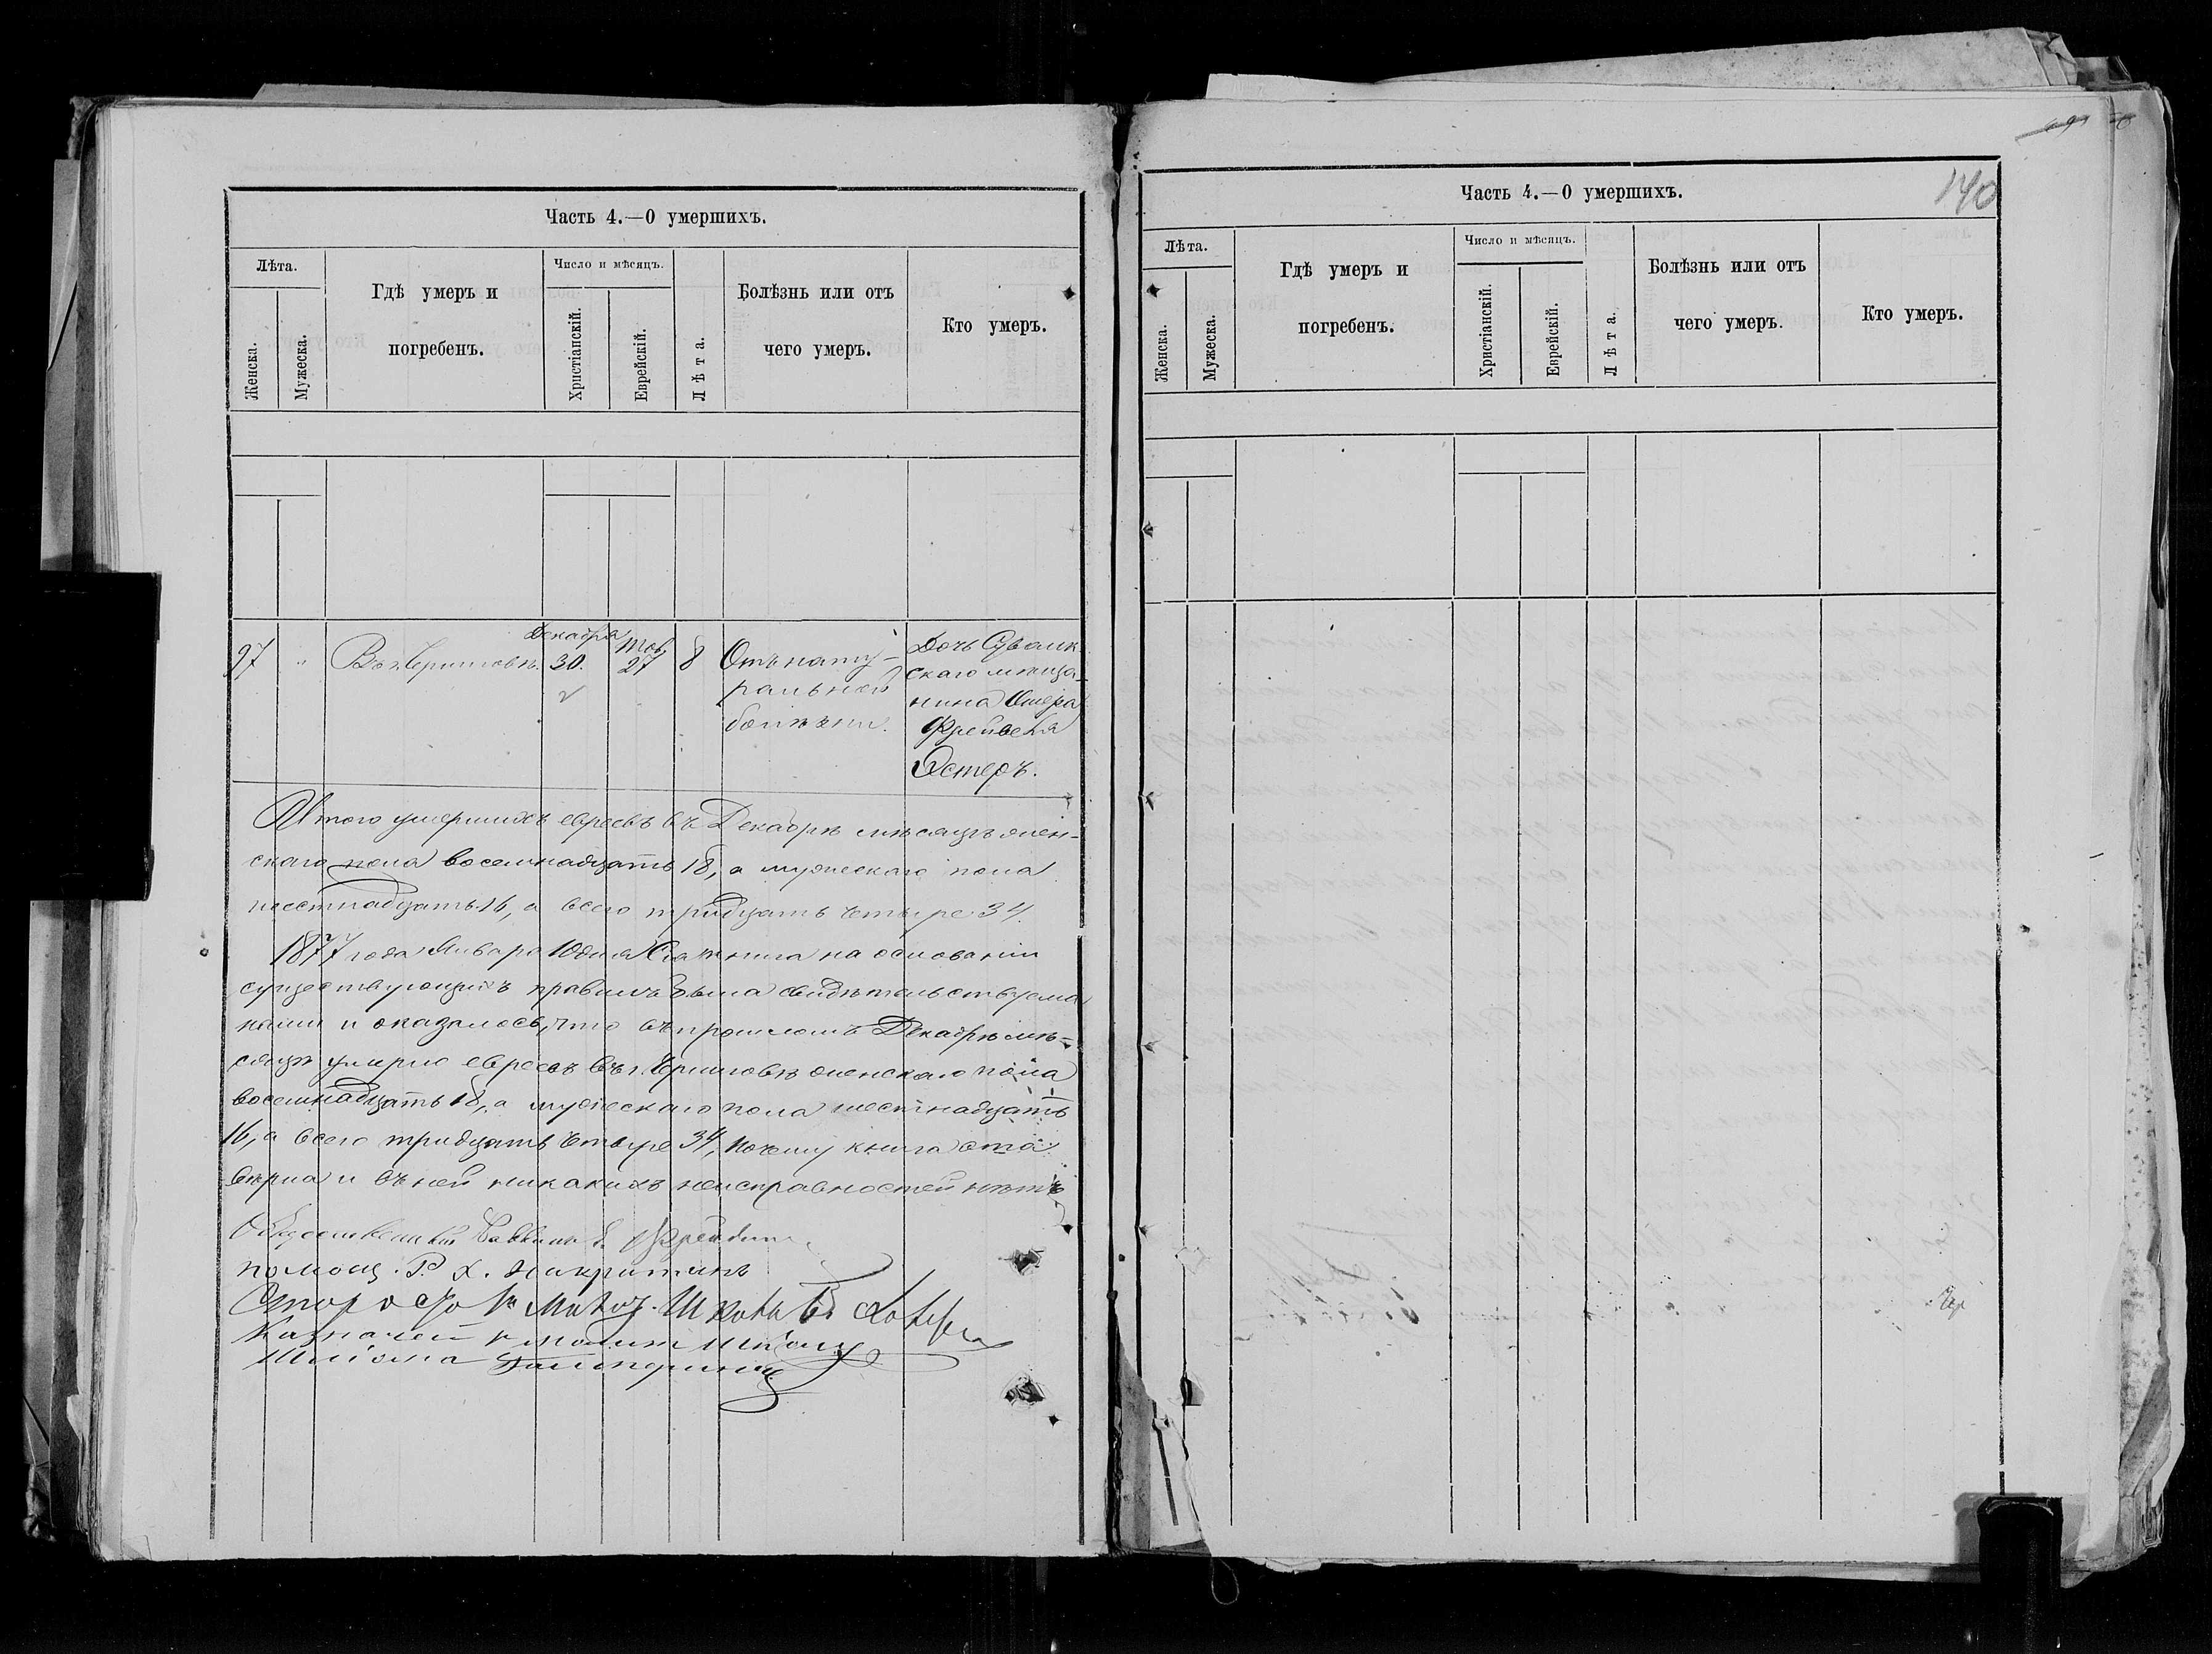 Часть 4.—О умершихъ.
Лѣта.
Женска.
Мужеска.
Гдѣ умеръ и
погребенъ.
Число и мѣсяцъ.
Христіанскій.
Еврейскій.
Лѣта.
Болѣзнь или отъ
чего умеръ.
Кто умеръ.
97 " Въ г. Черниговѣ. Декабря 30. Тов. 27 8
Отъ нату-
ральной
болѣзни.
Дочь
скаго мѣща-
нина
Эстеръ.
Итого умершихъ евреевъ въ Декабрѣ мѣсяцѣ жен-
скаго пола восемнадцать 18, а мужескаго пола
шестнадцать 16, а всего тридцать четыре 34.
1877 года Января 10 дня Сія книга на основаніи
существующихъ правилъ была свидѣтельствуема
нами и оказалось, что въ прошломъ Декабрѣ мѣ-
сяцѣ умерло евреевъ въ г. Черниговѣ женскаго пола
восемнадцать 18, а мужескаго пола шестнадцать
16, а всего тридцать четыре 34, почему книга эта
вѣрна и въ ней никакихъ неисправностей нѣтъ
Общественный Раввинъ
помощ. Р. Х.
Казначей
Шліома
Часть 4.—О умершихъ.
140
Лѣта.
Женска.
Мужеска.
Гдѣ умеръ и
погребенъ.
Число и мѣсяцъ.
Христіанскій.
Еврейскій.
Лѣта.
Болѣзнь или отъ
чего умеръ.
Кто умеръ.